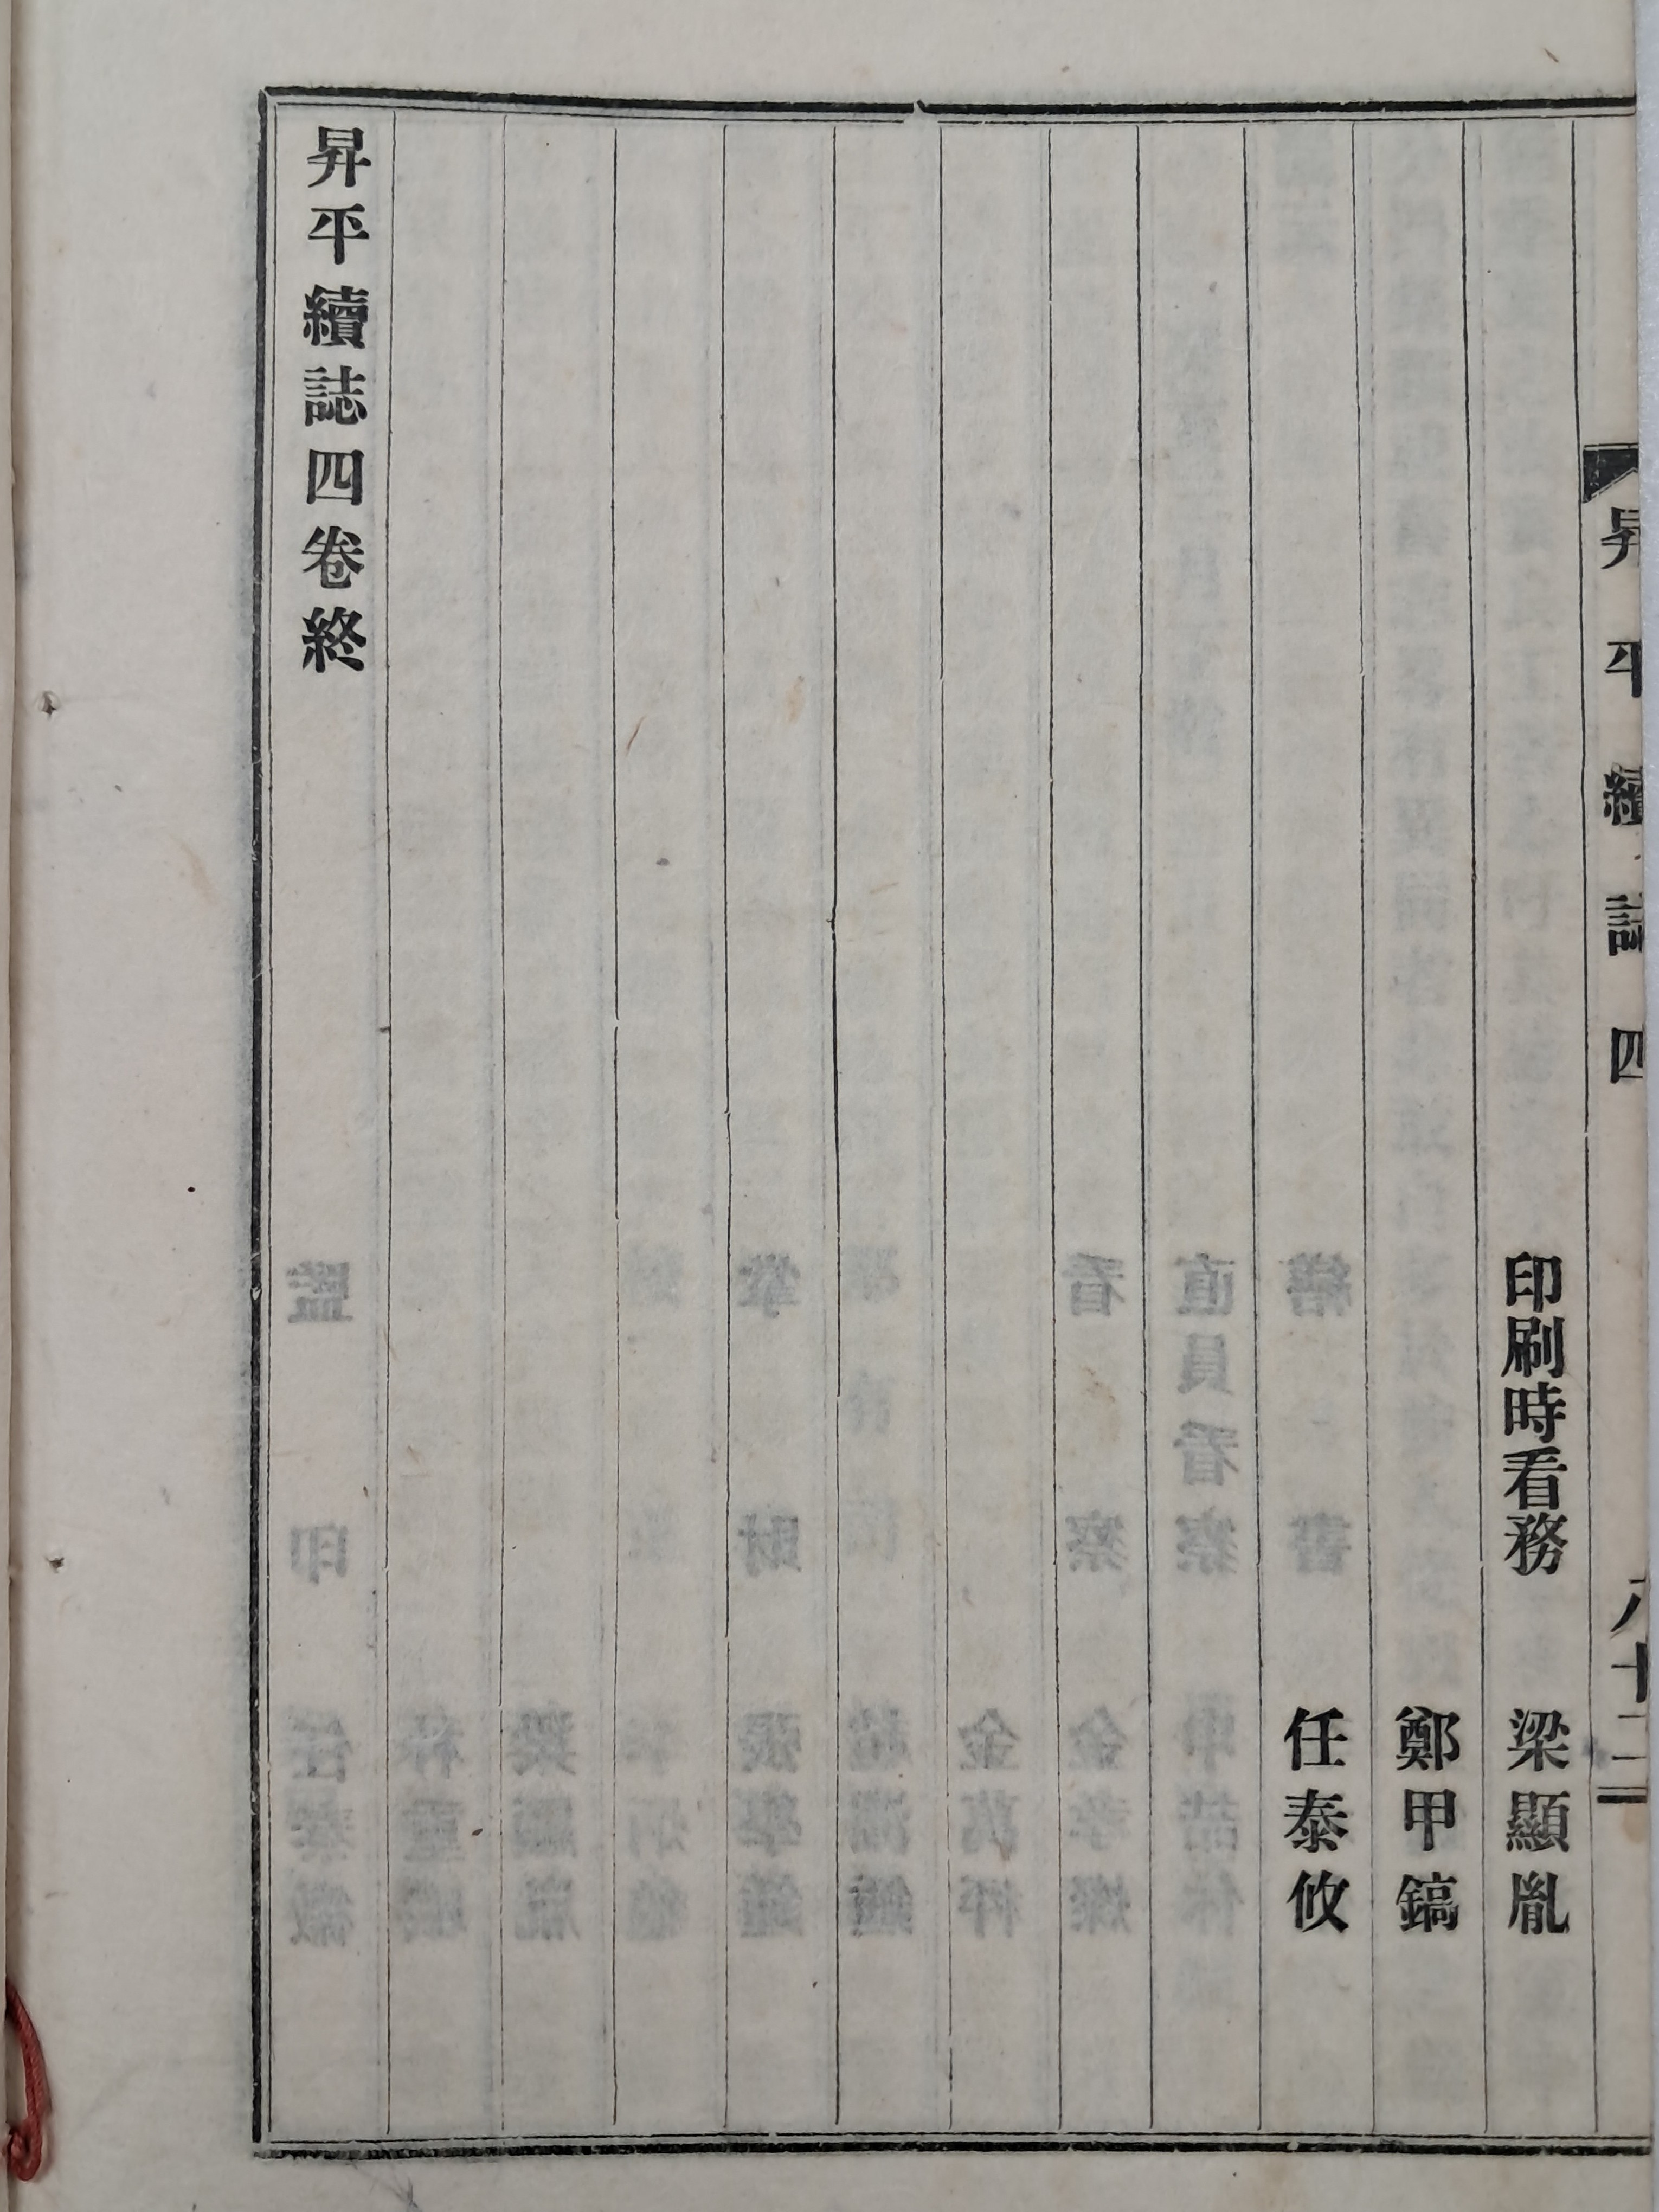 昇平續誌 四 八十二
印刷時看務 梁顯胤
鄭甲鎬
任泰攸
昇平續誌四卷終